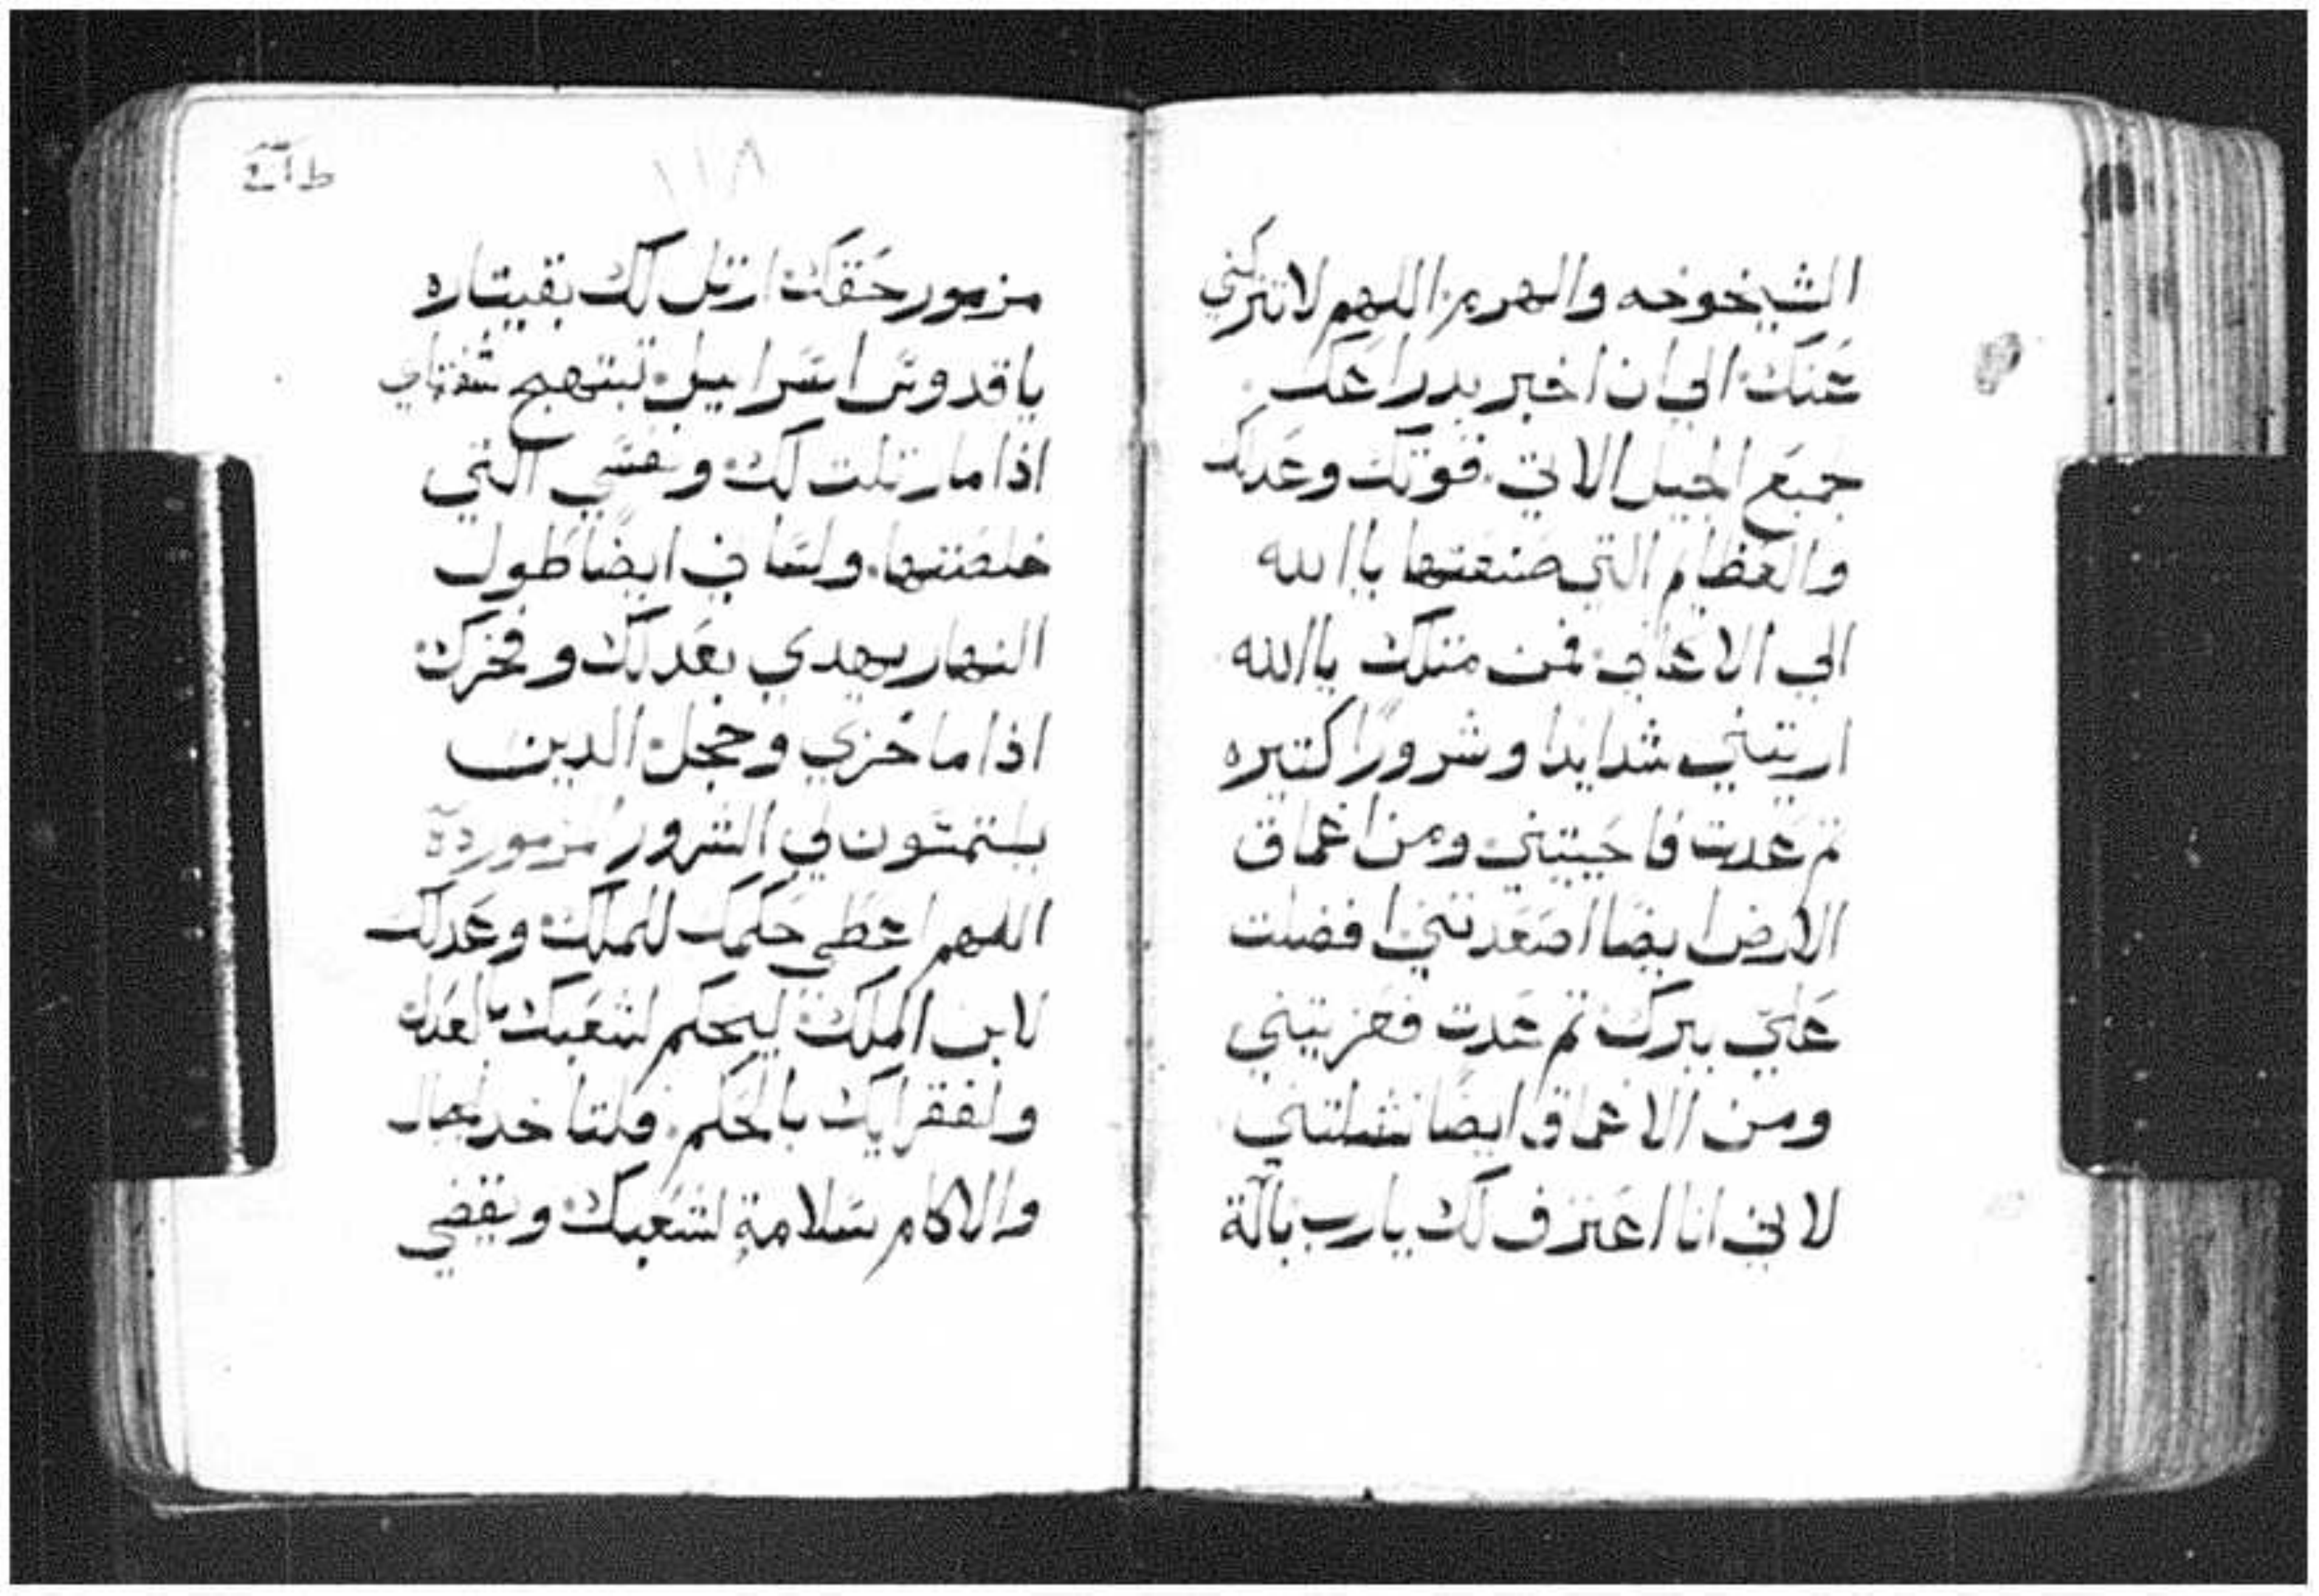 الشيخوخه والهرم اللهم لا تتركني
عنك الي ان اخبر بدراعك
جميع الجيل الاتي قوتك وعدلك
والعظام التي صنعتها ياالله
الي الاعالي فمن متلك ياالله
اريتني شدايدا وشرورًا كتيره
تم عدت فاحييتني ومن اعماق
الارض ايضًا اصعدتني افضلت
عليّ ببرك تم عدت فعزيتني
ومن الاعماق ايضًا نشلتني
لاني انا اعترف لك يارب بآلة
١١٨
مزمور حقك ارتل لك بقيتاره
ياقدوس اسراييل تبتهج شفتاي
اذا ما رتلت لك ونفسي التي
خلصتها ولساني ايضًا طول
النهار يهدي بعدلك وفخرك
اذا ما خزي وخجل الدين
يلتمسون لي الشرور مزمور
اللهم اعطي حكمك للملك وعدلك
لابن الملك ليحكم لشعبك بالعدل
ولفقرايك بالحكم فلتاخد الجبال
والاكام سلامة لشعبك ويقضي